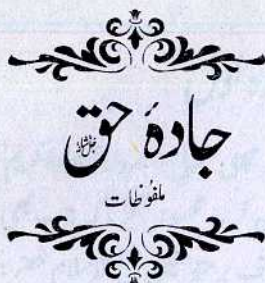 جادۂ حق جل جلالہ
ملفوظات